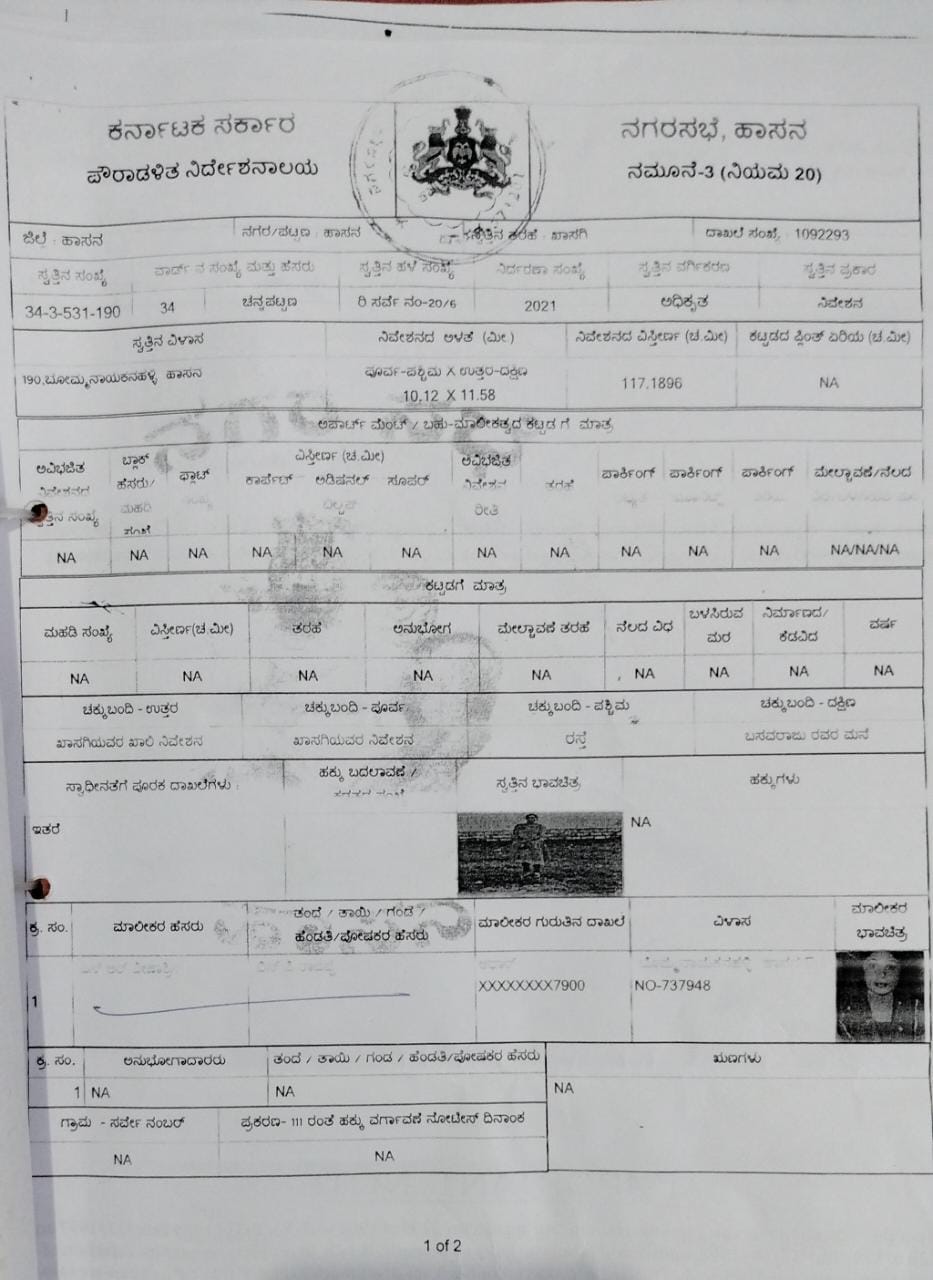 ಕರ್ನಾಟಕ ಸರ್ಕಾರ
ಪೌರಾಡಳಿತ ನಿರ್ದೇಶನಾಲಯ
ನಗರಸಭೆ, ಹಾಸನ
ನಮೂನೆ-3 (ನಿಯಮ 20)
ಜಿಲ್ಲೆ : ಹಾಸನ ನಗರ/ಪಟ್ಟಣ : ಹಾಸನ ಸ್ವತ್ತಿನ ತರಹೆ : ಖಾಸಗಿ ದಾಖಲೆ ಸಂಖ್ಯೆ : 1092293
ಸ್ವತ್ತಿನ ಸಂಖ್ಯೆ ವಾರ್ಡ್ ನ ಸಂಖ್ಯೆ ಮತ್ತು ಹೆಸರು ಸ್ವತ್ತಿನ ಹಳೆ ಸಂಖ್ಯೆ ನಿರ್ದರಣಾ ಸಂಖ್ಯೆ ಸ್ವತ್ತಿನ ವರ್ಗಿಕರಣ ಸ್ವತ್ತಿನ ಪ್ರಕಾರ
34-3-531-190 34 ಚನ್ನಪಟ್ಟಣ ರಿ ಸರ್ವೆ ನಂ-20/6 2021 ಅಧಿಕೃತ ನಿವೇಶನ
ಸ್ವತ್ತಿನ ವಿಳಾಸ ನಿವೇಶನದ ಅಳತೆ (ಮೀ.) ನಿವೇಶನದ ವಿಸ್ತೀರ್ಣ (ಚ.ಮೀ) ಕಟ್ಟಡದ ಪ್ಲಿಂತ್ ಏರಿಯ (ಚ.ಮೀ)
190,ಬೊಮ್ಮನಾಯಕನಹಳ್ಳಿ ಹಾಸನ ಪೂರ್ವ-ಪಶ್ಚಿಮ X ಉತ್ತರ-ದಕ್ಷಿಣ
10.12 X 11.58 117.1896 NA
ಅಪಾರ್ಟ್ ಮೆಂಟ್ / ಬಹು-ಮಾಲೀಕತ್ವದ ಕಟ್ಟಡ ಗೆ ಮಾತ್ರ
ಅವಿಭಜಿತ ಬ್ಲಾಕ್ ಫ್ಲಾಟ್ ವಿಸ್ತೀರ್ಣ (ಚ.ಮೀ) ಅವಿಭಜಿತ ಪಾರ್ಕಿಂಗ್ ಪಾರ್ಕಿಂಗ್ ಪಾರ್ಕಿಂಗ್ ಮೇಲ್ಛಾವಣೆ/ನೆಲದ
ನಿವೇಶನದ ಹೆಸರು/ ಕಾರ್ಪೆಟ್ ಅಡಿಷನಲ್ ಸೂಪರ್ ನಿವೇಶನ ತರಹೆ
ಸ್ವತ್ತಿನ ಸಂಖ್ಯೆ ಮಹಡಿ ರೀತಿ
ಸಂಖ್ಯೆ
NA NA NA NA NA NA NA NA NA NA NA NA/NA/NA
ಕಟ್ಟಡಗೆ ಮಾತ್ರ
ಮಹಡಿ ಸಂಖ್ಯೆ ವಿಸ್ತೀರ್ಣ(ಚ.ಮೀ) ತರಹೆ ಅನುಭೋಗ ಮೇಲ್ಛಾವಣೆ ತರಹೆ ನೆಲದ ವಿಧ ಬಳಸಿರುವ ಮರ ನಿರ್ಮಾಣದ/ ಕೆಡವಿದ ವರ್ಷ
NA NA NA NA NA NA NA NA NA
ಚಕ್ಕುಬಂದಿ - ಉತ್ತರ ಚಕ್ಕುಬಂದಿ - ಪೂರ್ವ ಚಕ್ಕುಬಂದಿ - ಪಶ್ಚಿಮ ಚಕ್ಕುಬಂದಿ - ದಕ್ಷಿಣ
ಖಾಸಗಿಯವರ ಖಾಲಿ ನಿವೇಶನ ಖಾಸಗಿಯವರ ನಿವೇಶನ ರಸ್ತೆ ಬಸವರಾಜು ರವರ ಮನೆ
ಸ್ವಾಧೀನತೆಗೆ ಪೂರಕ ದಾಖಲೆಗಳು : ಹಕ್ಕು ಬದಲಾವಣೆ / ಸ್ವತ್ತಿನ ಭಾವಚಿತ್ರ ಹಕ್ಕುಗಳು
ಇತರೆ NA
ಕ್ರ. ಸಂ. ಮಾಲೀಕರ ಹೆಸರು ತಂದೆ / ತಾಯಿ / ಗಂಡ / ಹೆಂಡತಿ/ಪೋಷಕರ ಹೆಸರು ಮಾಲೀಕರ ಗುರುತಿನ ದಾಖಲೆ ವಿಳಾಸ ಮಾಲೀಕರ ಭಾವಚಿತ್ರ
1 XXXXXXXX7900 NO-737948
ಕ್ರ. ಸಂ. ಅನುಭೋಗಾದಾರರು ತಂದೆ / ತಾಯಿ / ಗಂಡ / ಹೆಂಡತಿ/ಪೋಷಕರ ಹೆಸರು ಋಣಗಳು
1 NA NA NA
ಗ್ರಾಮ - ಸರ್ವೇ ನಂಬರ್ ಪ್ರಕರಣ- 111 ರಂತೆ ಹಕ್ಕು ವರ್ಗಾವಣೆ ನೋಟೀಸ್ ದಿನಾಂಕ
NA NA
1 of 2